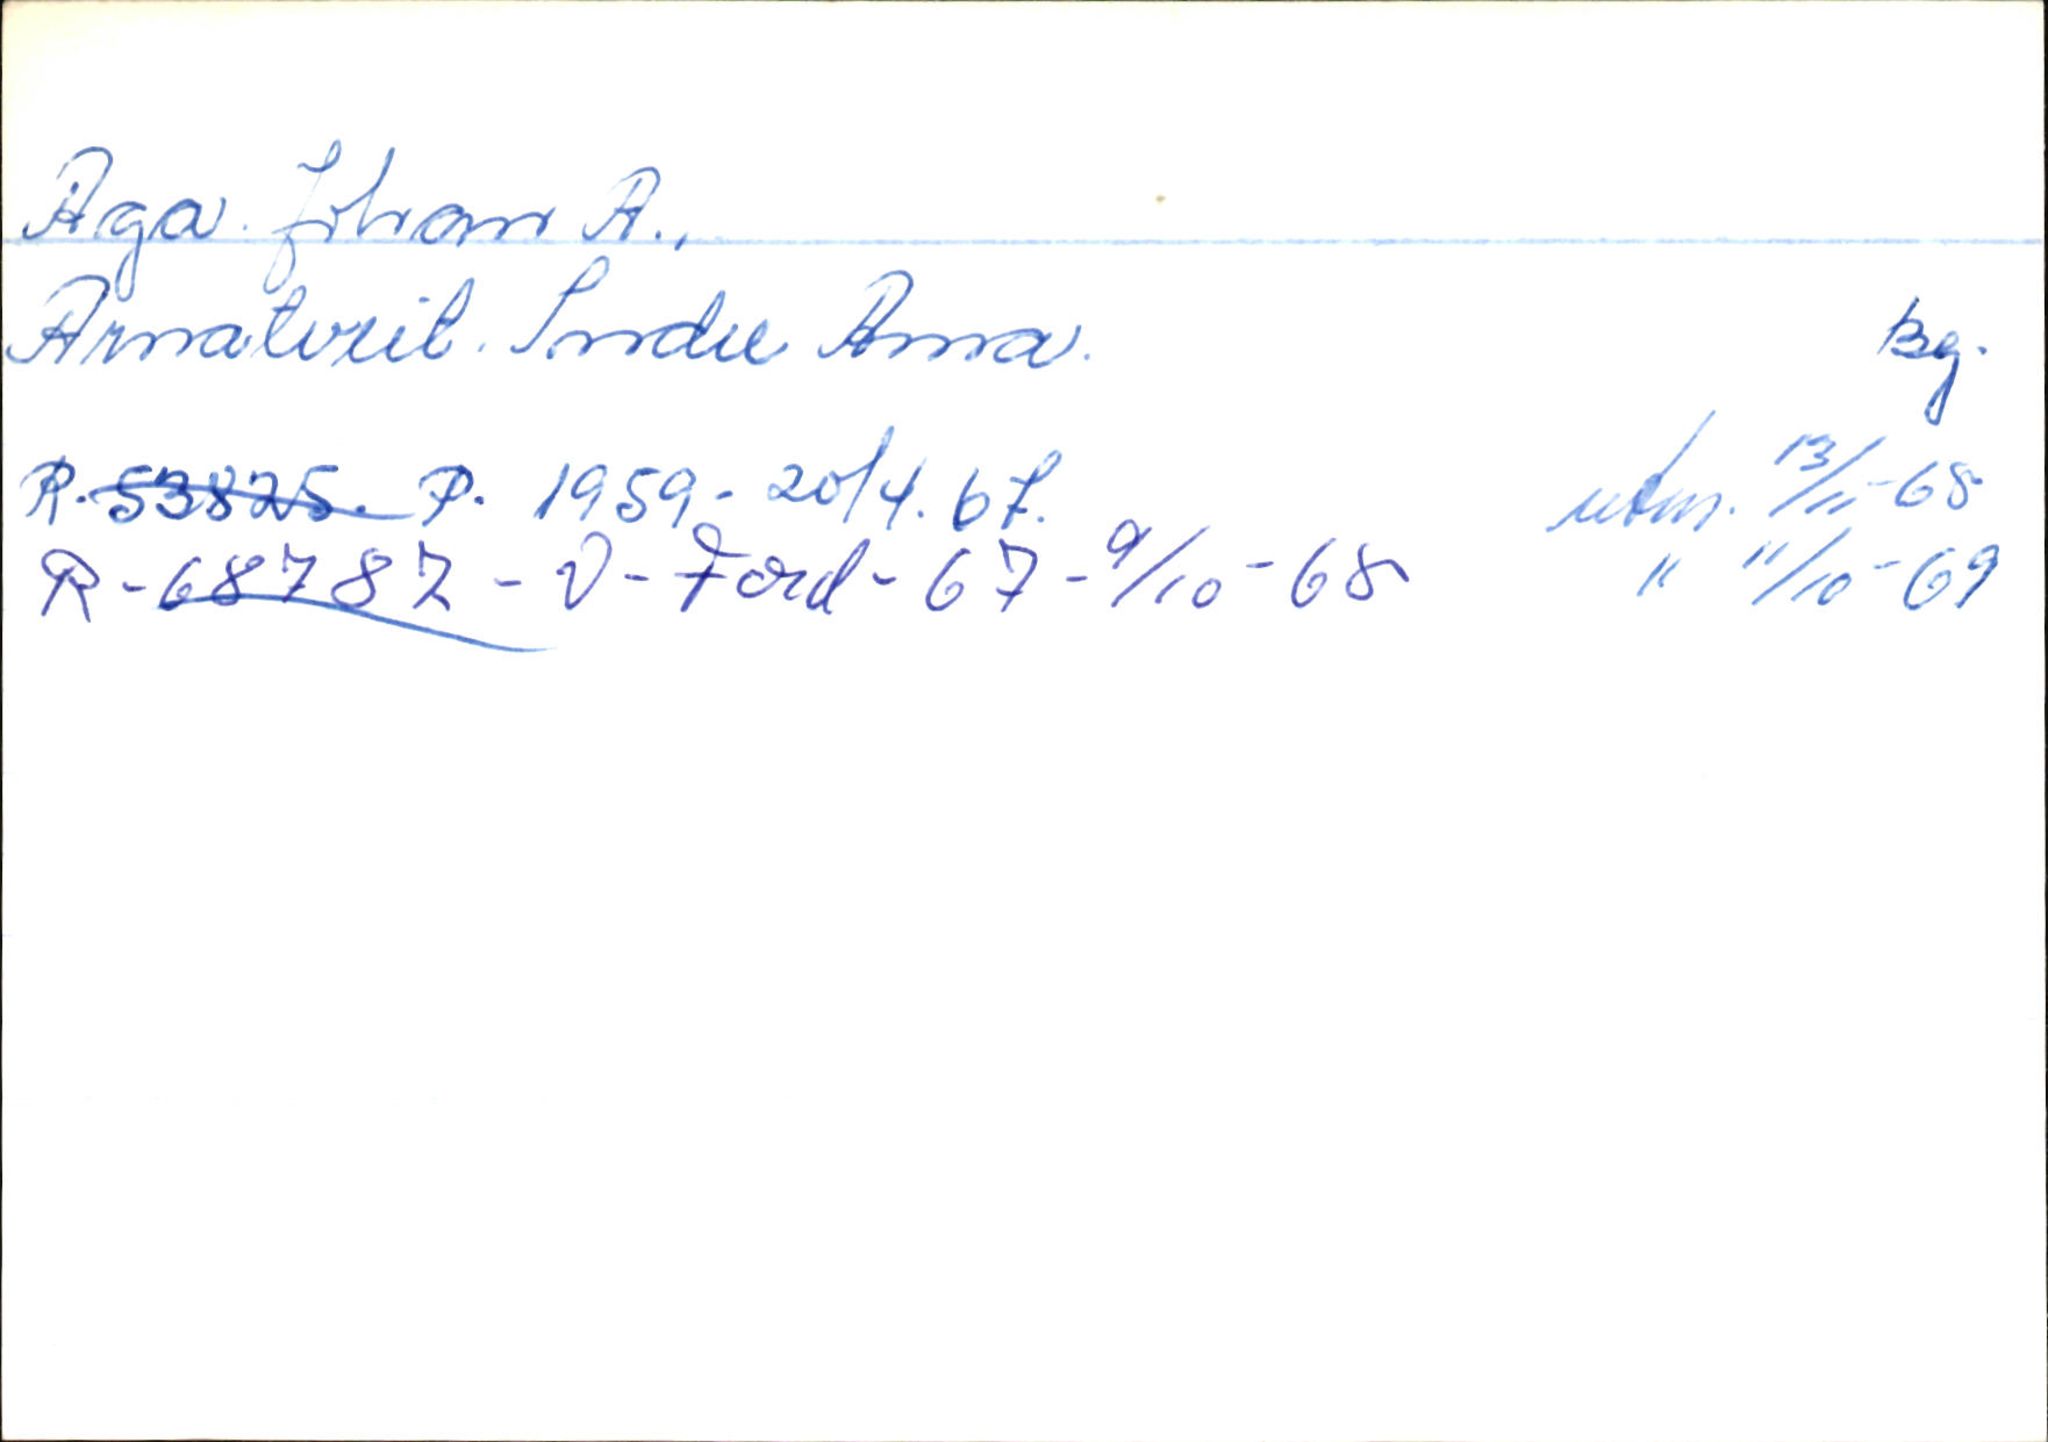 Aga. Johan A.,
Arnatveit. Indre Arna.
Bg.
R. 53825. P. 1959 - 20/4. 67. utm. 13/11-68
R - 68787 - V - Ford - 67 - 9/10 - 68 " 11/10-69